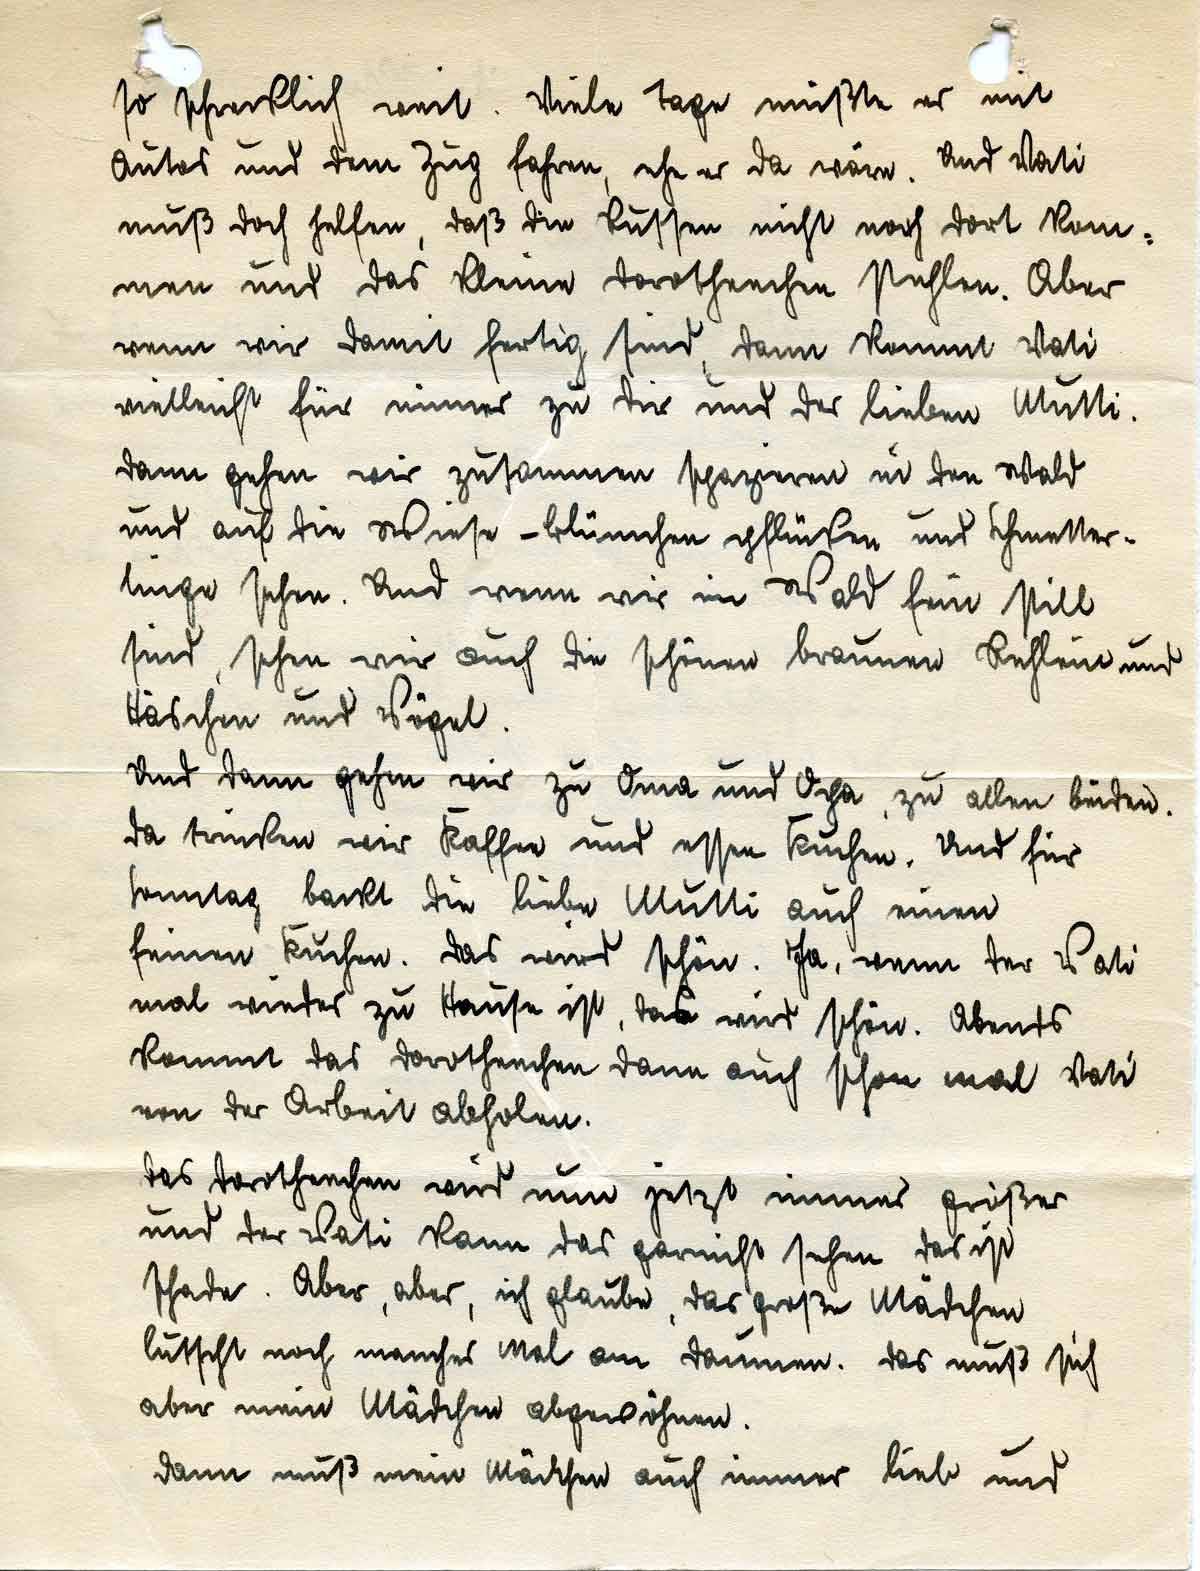 so schrecklich weit. Viele Tage müßte er mit
Autos und dem Zug fahren, ehe er da wäre. Und Vati
muß doch helfen, daß die Russen nicht nach dort kom=
men und das kleine Dorotheechen stehlen. Aber
wenn wir damit fertig sind, dann kommt Vati
vielleicht für immer zu Dir und der lieben Mutti.
Dann gehen wir zusammen spazieren in den Wald
und auf die Wiese - Blümchen pflücken und Schmetter-
linge sehen. Und wenn wir im Wald fein still
sind, sehen wir auch die schönen braunen Rehlein und
Häschen und Vögel.
Und dann gehen wir zu Oma und Opa, zu allen beiden.
Da trinken wir Kaffee und essen Kuchen. Und für
Sonntag backt die liebe Mutti auch einen
feinen Kuchen. Das wird schön. Ja, wenn der Vati
mal wieder zu Hause ist, das wird schön. Abends
kommt das Dorotheechen dann auch schon mal Vati
von der Arbeit abholen.
Das Dorotheechen wird nun jetzt immer größer
und der Vati kann das garnicht sehen das ist
schade. Aber, aber, ich glaube, das große Mädchen
lutscht noch manches Mal am Daumen. Das muß sich
aber mein Mädchen abgewöhnen.
Dann muß mein Mädchen auch immer lieb und